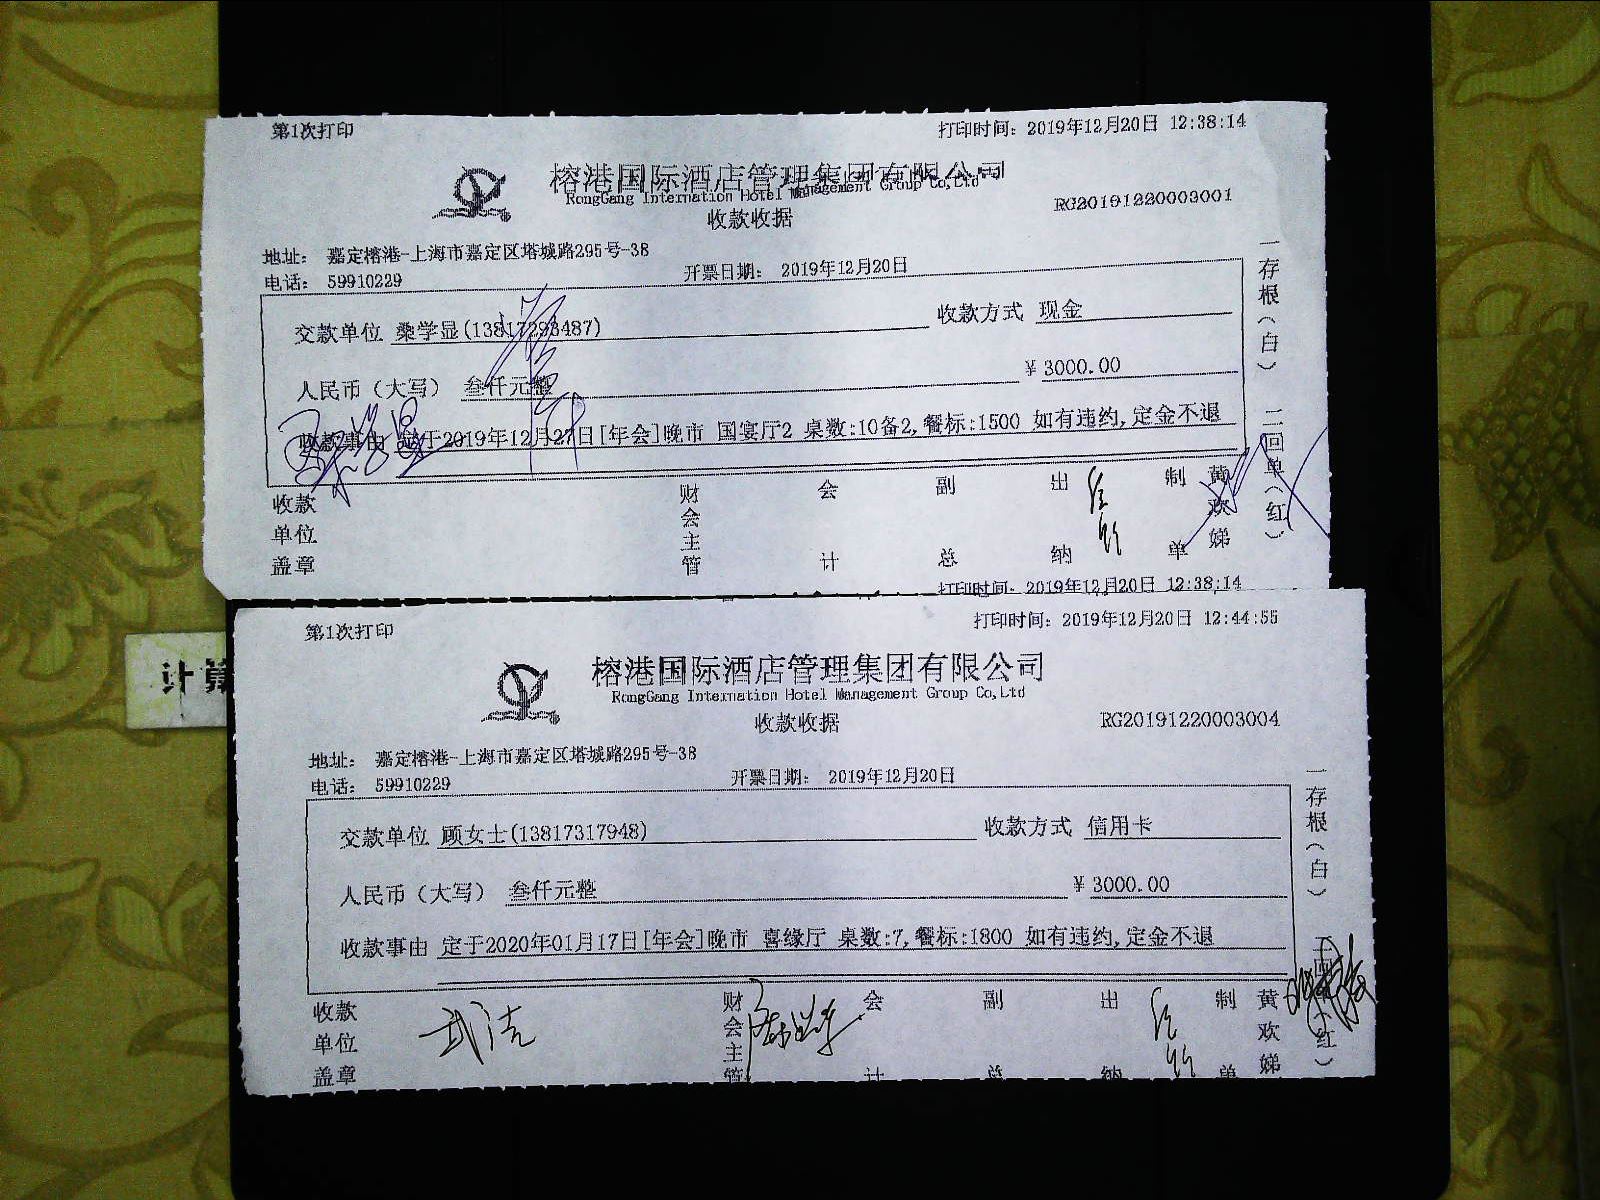 第1次打印 打印时间：2019年12月20日 12:38:14
榕港国际酒店管理集团有限公司
RongGang Internation Hotel Management Group Co,Ltd
收款收据 RG20191220003001
地址： 嘉定榕港-上海市嘉定区塔城路295号-38
电话： 59910229 开票日期： 2019年12月20日
交款单位 桑学显(13817293487) 收款方式 现金
人民币（大写） 叁仟元整 ￥3000.00
收款事由 定于2019年12月27日[年会]晚市 国宴厅2 桌数:10备2,餐标:1500 如有违约,定金不退
收款单位盖章 财会主管 会计 副总 出纳 制单 黄欢娣
一存根（白） 二回单（红）
打印时间：2019年12月20日 12:38:14
计算
第1次打印 打印时间：2019年12月20日 12:44:55
榕港国际酒店管理集团有限公司
RongGang Internation Hotel Management Group Co,Ltd
收款收据 RG20191220003004
地址： 嘉定榕港-上海市嘉定区塔城路295号-38
电话： 59910229 开票日期： 2019年12月20日
交款单位 顾女士(13817317948) 收款方式 信用卡
人民币（大写） 叁仟元整 ￥3000.00
收款事由 定于2020年01月17日[年会]晚市 喜缘厅 桌数:7,餐标:1800 如有违约,定金不退
收款单位盖章 武洁 财会主管 会计 副总 出纳 制单 黄欢娣
一存根（白） 二回单（红）